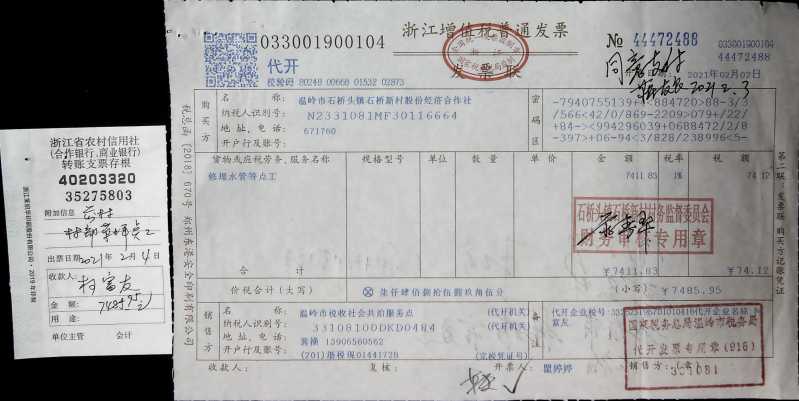 浙江省农村信用社
(合作银行、商业银行)
转账支票存根
40203320
35275803
附加信息
出票日期 2021年 2月 4日
收款人:
金额: 7485.95
用途:
单位主管 会计
033001900104
浙江增值税普通发票
发票联
代开
校验码 80248 00668 01532 02873
№ 44472488
033001900104
44472488
2021年02月02日
同意支付
2021.2.3
税总函〔2018〕670号
购买方
名称: 温岭市石桥头镇石桥新村股份经济合作社
纳税人识别号: N2331081MF30116664
地址、电话: 671760
开户行及账号:
密码区
-7940755139+<884720>88-3/3
/566<42/0/869-2209>079+/22/
+84->< 994296039+0688472/2/8
-397>+06-94<3/828/238996<5-
货物或应税劳务、服务名称 规格型号 单位 数量 单价 金额 税率 税额
修埋水管等点工 7411.83 1% 74.12
石桥头镇石桥新村村务监督委员会
财务审核专用章
合计 ¥7411.83 ¥74.12
价税合计(大写) 柒仟肆佰捌拾伍圆玖角伍分 (小写) ¥7485.95
销售方
名称: 温岭市税收社会共治服务点 (代开机关)
纳税人识别号: 33108100DKD0484 (代开机关)
地址、电话: 13906560562
开户行及账号: (201) 浙税现01441728 (完税凭证号)
备注
国家税务总局温岭市税务局
代开发票专用章(916)
331081
收款人: 复核: 开票人: 瞿婷婷 销售方:(章)
第二联:发票联 购买方记账凭证